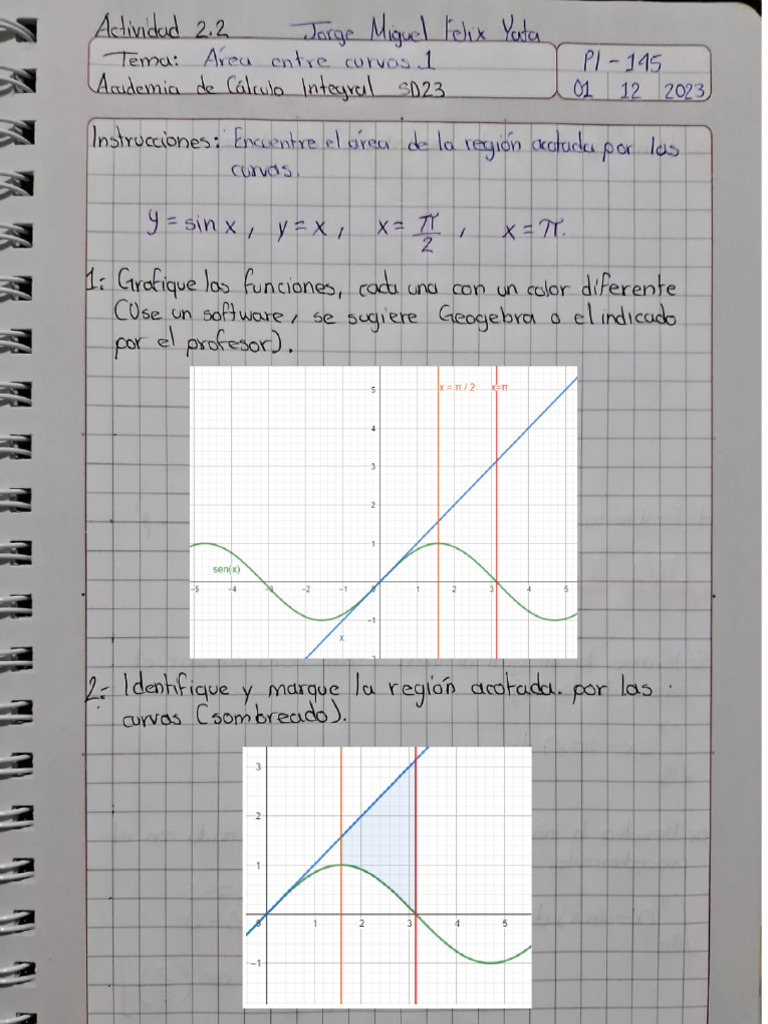 Actividad 2.2 Jorge Miguel Felix Yata
Tema: Área entre curvas 1
PI-145
Academia de Cálculo Integral SD23
01 12 2023
Instrucciones: Encuentre el área de la región acotada por las
curvas.
y = sin x, y = x, x = π/2, x = π.
1: Grafique las funciones, cada una con un color diferente
(Use un software, se sugiere Geogebra o el indicado
por el profesor).
x = π / 2 x=π
5
4
3
2
1
sen(x)
-5 -4 -3 -2 -1 0 1 2 3 4 5
-1
x
-2
2: Identifique y marque la región acotada. por las
curvas (sombreado).
3
2
1
0 1 2 3 4 5
-1